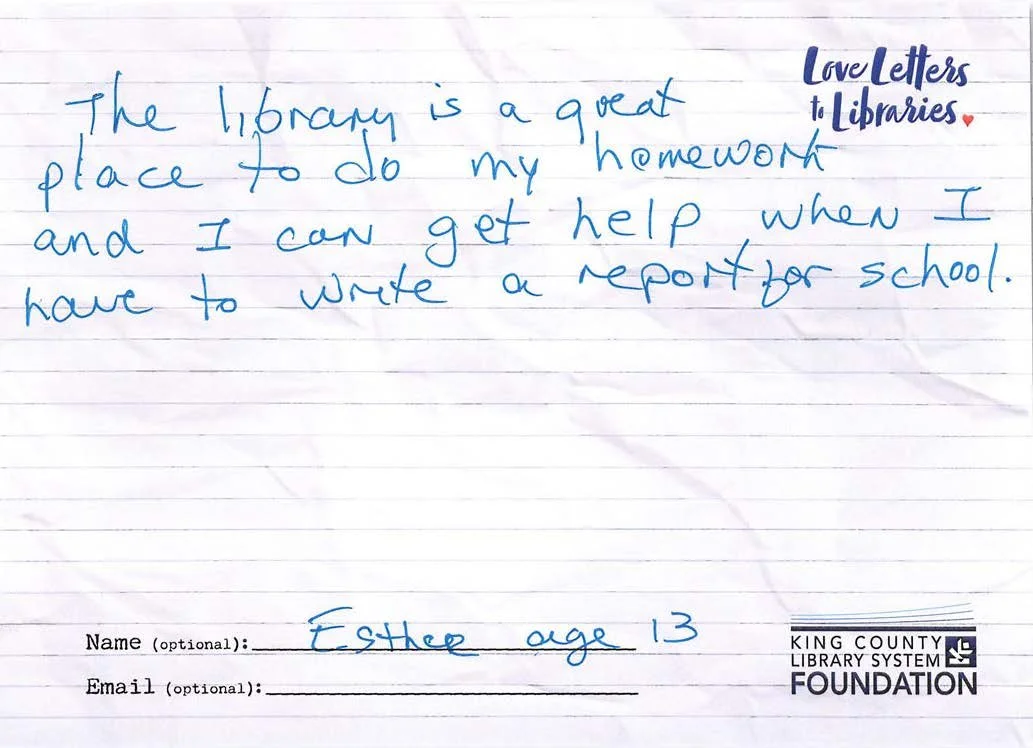 Love Letters
to Libraries
The library is a great
place to do my homework
and I can get help when I
have to write a report for school.
Name (optional): Esther age 13
Email (optional):
KING COUNTY
LIBRARY SYSTEM
FOUNDATION